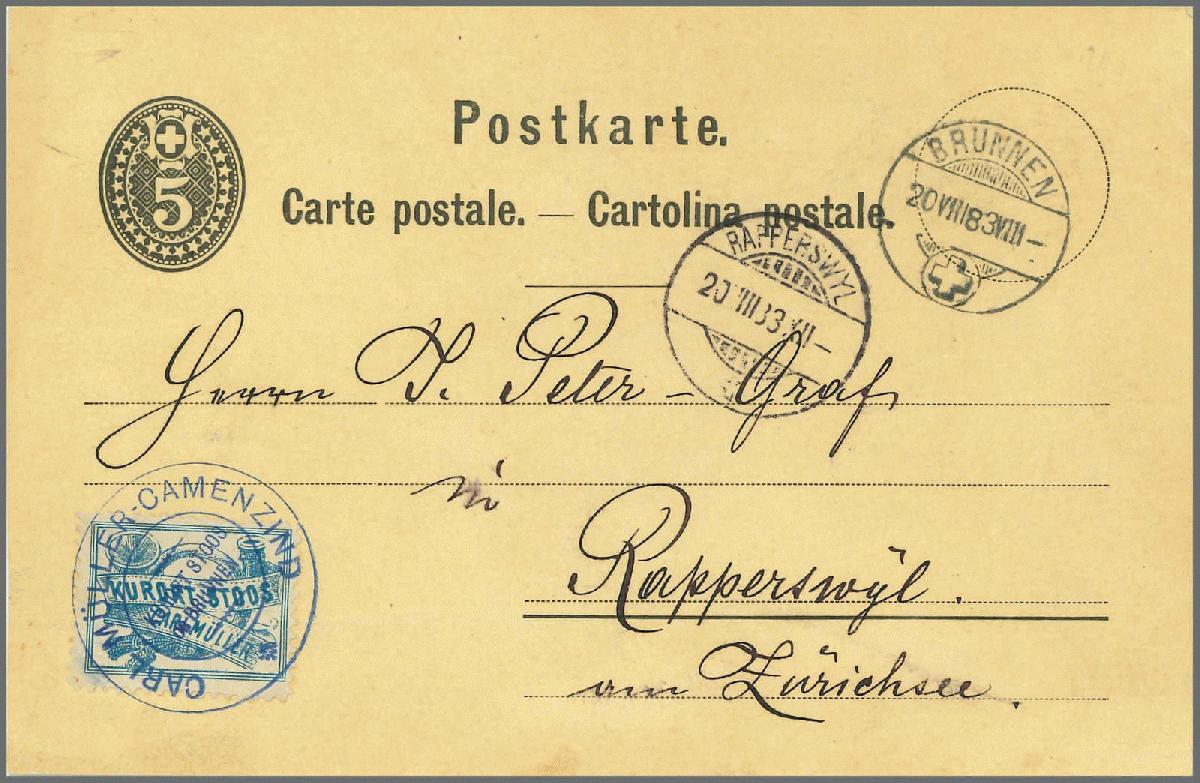 Postkarte.
5
Carte postale. — Cartolina postale.
BRUNNEN
20 VIII 83 VIII –
RAPPERSWYL
20 VIII 83 XII –
Herrn J. Peter – Graf
in
Rapperswÿl.
am Zürichsee.
CARL MÜLLER-CAMENZIND
KURORT STOOS
BEI BRUNNEN
KURORT STOOS
CARL MÜLLER